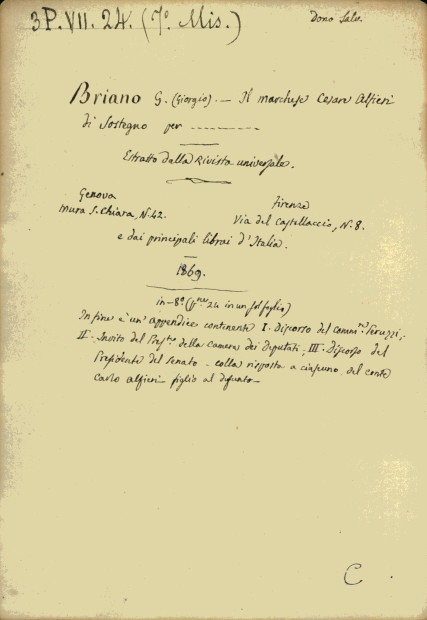 3P.VII.24. (7º. Mis.)
Dono Salv.
Briano G. (Giorgio). — Il marchese Cesare Alfieri
di Sostegno per ............
Estratto dalla Rivista universale.
Genova
Mura S. Chiara, N. 42.
Firenze
Via del Castellaccio, N. 8.
e dai principali librai d'Italia.
1869.
in-8º (ff.nes 24 in un sol foglio)
In fine è un' appendice continente I. Discorso del Comm.re Peruzzi;
II. Invito del Pres.te della Camera dei Deputati; III. Discorso del
Presidente del Senato – colla risposta a ciascuno, del conte
Carlo Alfieri figlio al defunto –
C